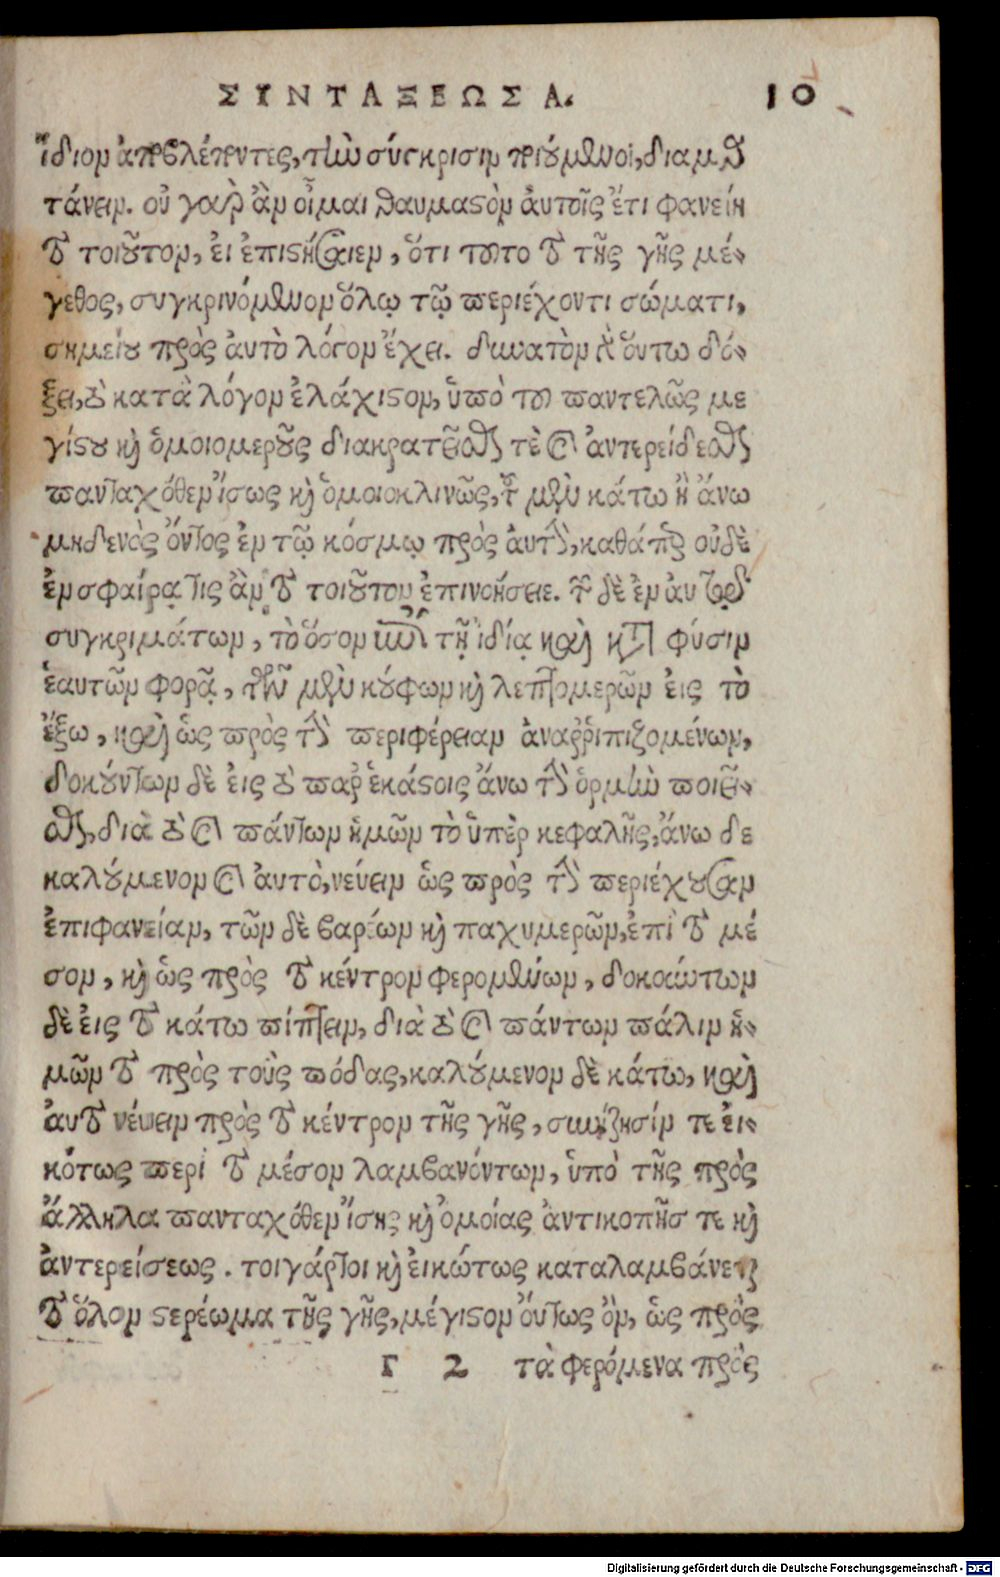 ΣΥΝΤΑΞΕΩΣ Α. 10
ἴδιον ἀποβλέποντες, τὴν σύγκρισιν ποιούμενοι, διαμαρ
τάνειν. οὐ γὰρ ἂν οἶμαι θαυμαστὸν ἀυτοῖς ἔτι φανείη
τὸ τοιοῦτον, ἐι ἐπιστήσαιεν, ὅτι τοῦτο τὸ τῆς γῆς μέ-
γεθος, συγκρινόμενον ὅλῳ τῷ περιέχοντι σώματι,
σημείου πρὸς ἀυτὸ λόγον ἔχει. δυνατὸν γὰρ ὅυτω δό-
ξει, τὸ κατὰ λόγον ἐλάχιστον, ὑπὸ τοῦ παντελῶς με
γίστου καὶ ὁμοιομεροῦς διακρατεῖσθαί τὲ καὶ ἀντερείδεσθαι
πανταχόθεν ἴσως καὶ ὁμοιοκλινῶς, τοῦ μὲν κάτω ἢ ἄνω
μηδενὸς ὄντος ἐν τῷ κόσμῳ πρὸς ἀυτὴν, καθάπερ οὐδὲ
ἐν σφαίρᾳ τὶς ἂν τὸ τοιοῦτον ἐπινοήσειε. τῶν δὲ ἐν ἀυτῷ
συγκριμάτων, τὸ ὅσον ἐπὶ τῇ ἰδίᾳ καὶ κατὰ φύσιν
ἑαυτῶν φορᾷ, τῶν μὲν κούφων καὶ λεπτομερῶν εἰς τὸ
ἔξω, καὶ ὡς πρὸς τὴν περιφέρειαν ἀναῤῥιπιζομένων,
δοκούντων δὲ εἰς τὸ παρ ἑκάστοις ἄνω τὴν ὁρμὴν ποιεῖ-
σθαι, διὰ τὸ καὶ πάντων ἡμῶν τὸ ὑπὲρ κεφαλῆς, ἄνω δε
καλούμενον καὶ ἀυτὸ, νεύειν ὡς πρὸς τὴν περιέχουσαν
ἐπιφανείαν, τῶν δὲ βαρέων καὶ παχυμερῶν, ἐπὶ τὸ μέ
σον, καὶ ὡς πρὸς τὸ κέντρον φερομένων, δοκούντων
δὲ ἐις τὸ κάτω πίπτειν, διὰ τὸ καὶ πάντων πάλιν ἡ-
μῶν τὸ πρὸς τοὺς πόδας, καλούμενον δὲ κάτω, καὶ
ἀυτὸ νέυειν πρὸς τὸ κέντρον τῆς γῆς, συνίζησίν τε ἐι-
κότως περὶ τὸ μέσον λαμβανόντων, ὑπὸ τῆς πρὸς
ἄλληλα πανταχόθεν ἴσης καὶ ὁμοίας ἀντικοπῆς τε καὶ
ἀντερείσεως. τοιγάρτοι καὶ εἰκώτως καταλαμβάνεται
τὸ ὅλον στερέωμα τῆς γῆς, μέγιστον ὄυτως ὂν, ὡς πρὸς
Γ 2 τὰ φερόμενα πρὸς
Digitalisierung gefördert durch die Deutsche Forschungsgemeinschaft - DFG